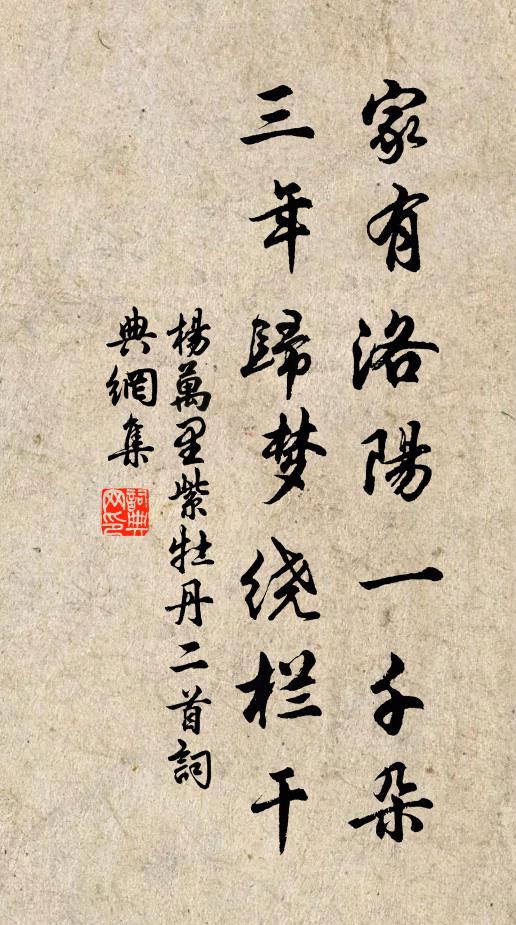 家有洛陽一千朵
三年歸梦绕栏干
楊萬里紫牡丹二首詞
典網集
詞典网印